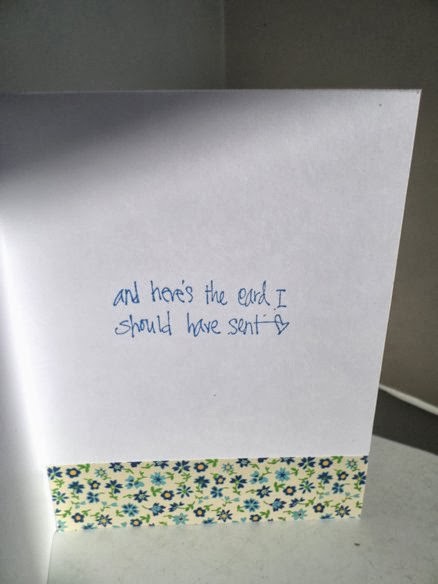 and here's the card I
should have sent ♡